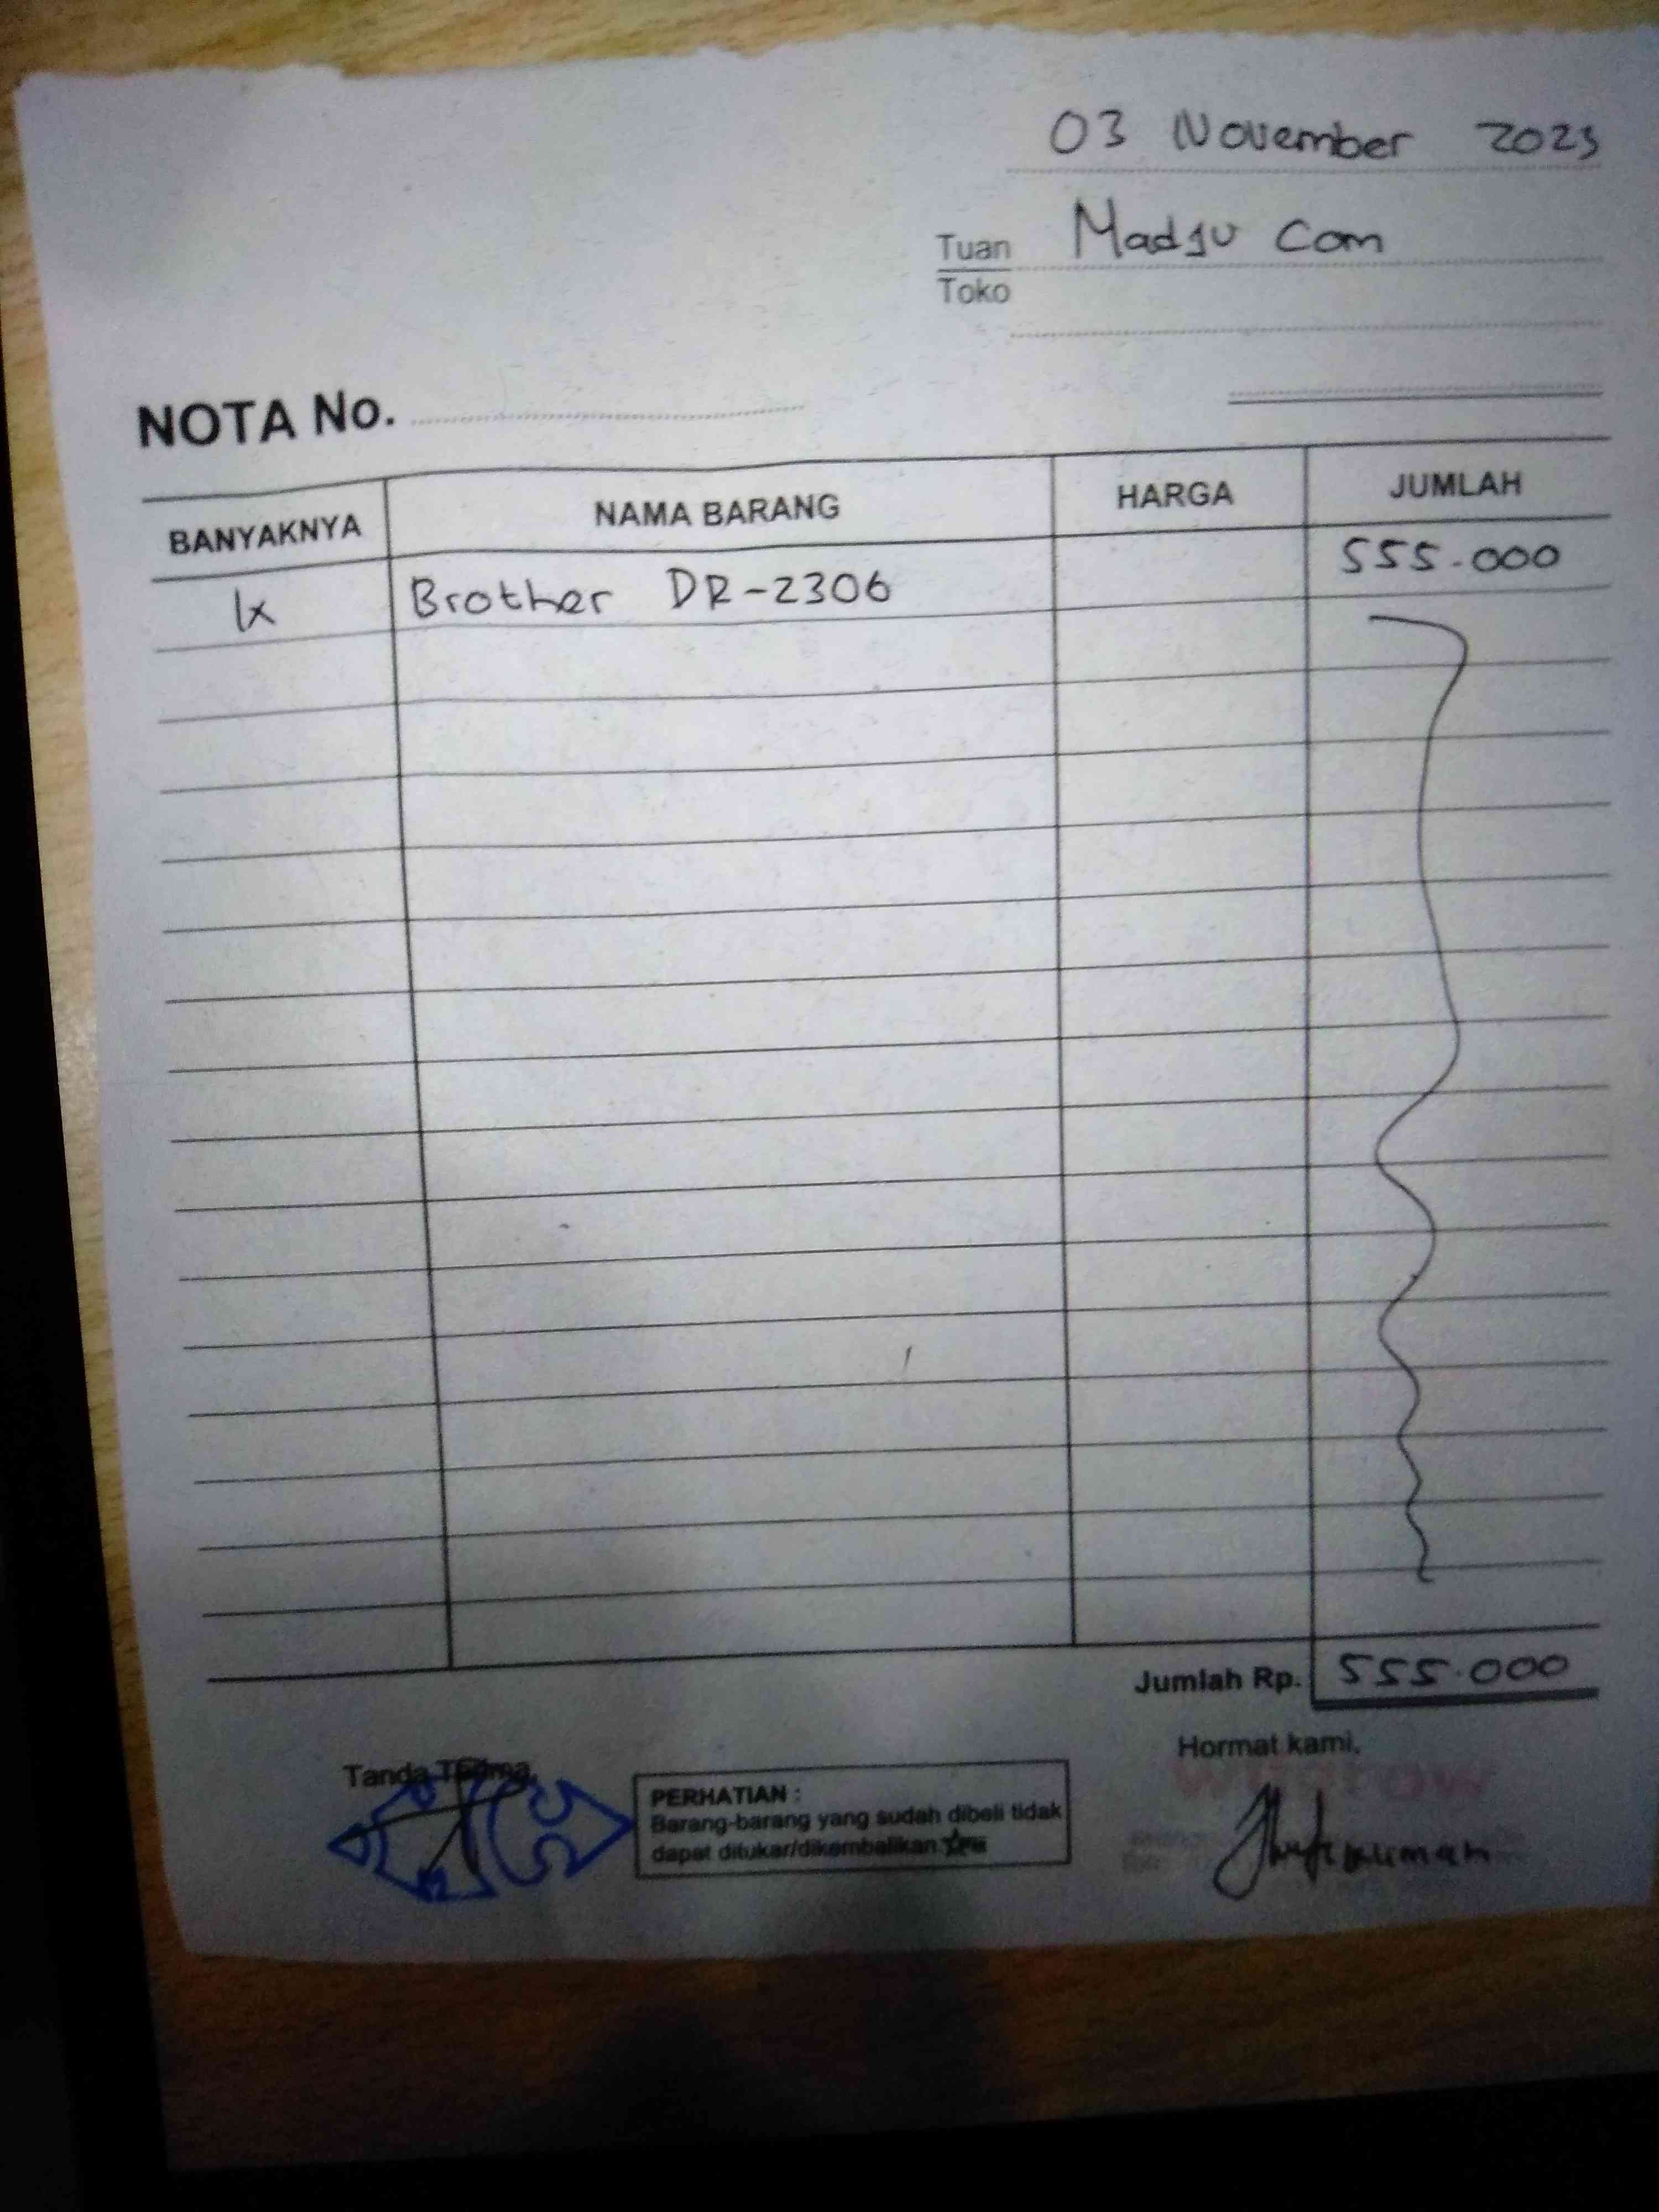 03 November 2023
Tuan Madju Com
Toko
NOTA No.
BANYAKNYA NAMA BARANG HARGA JUMLAH
1x Brother DR-2306 555.000
Jumlah Rp. 555.000
Tanda Terima, Hormat kami,
PERHATIAN :
Barang-barang yang sudah dibeli tidak
dapat ditukar/dikembalikan